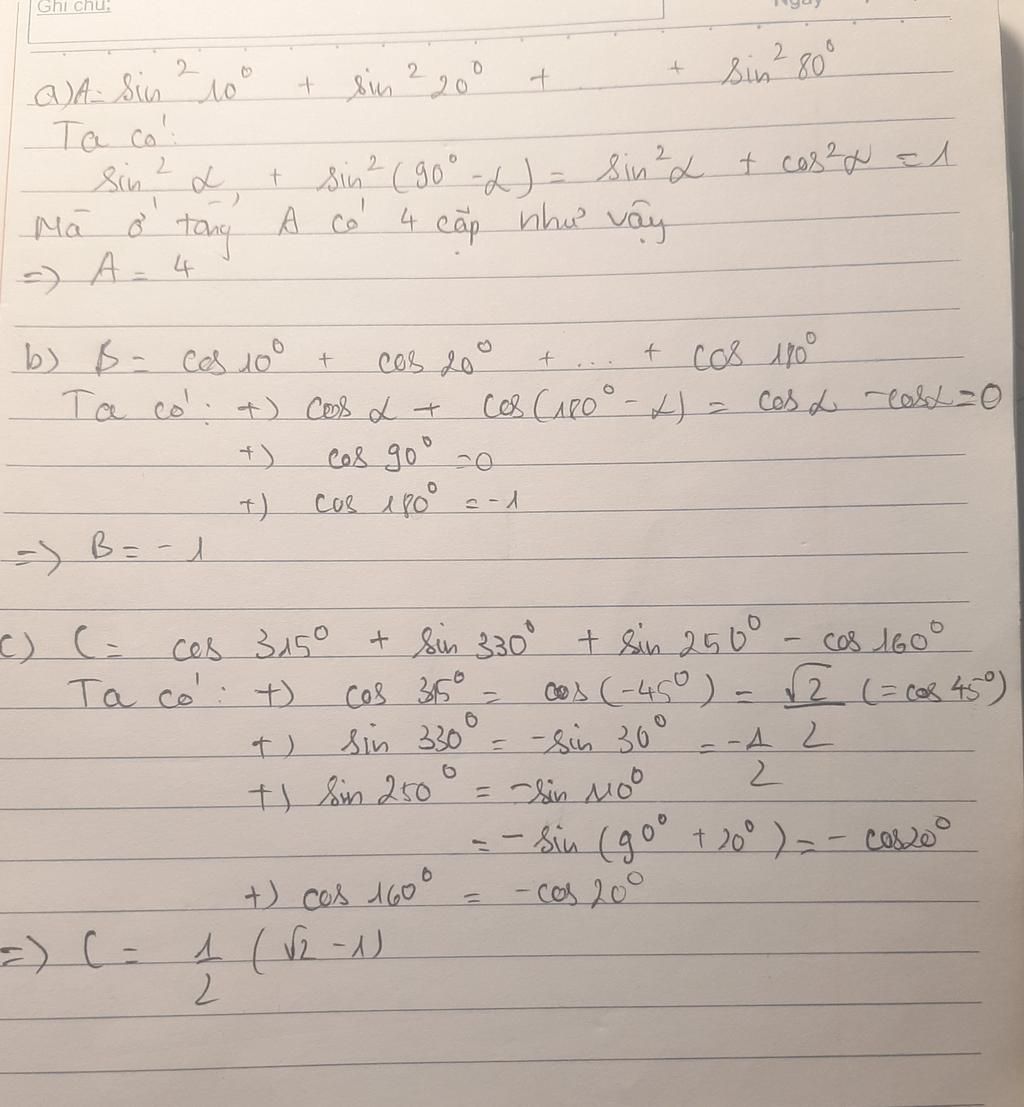 Ghi chú:
Ngày
a) A = sin² 10⁰ + sin² 20⁰ + + sin² 80⁰
Ta có:
sin² α + sin² (90⁰ - α) = sin² α + cos² α = 1
Mà ở tổng A có 4 cặp như vậy
=> A = 4
b) B = cos 10⁰ + cos 20⁰ + ... + cos 180⁰
Ta có: +) cos α + cos (180⁰ - α) = cos α - cos α = 0
+) cos 90⁰ = 0
+) cos 180⁰ = -1
=> B = -1
c) C = cos 315⁰ + sin 330⁰ + sin 250⁰ - cos 160⁰
Ta có: +) cos 315⁰ = cos (-45⁰) = √2/2 (= cos 45⁰)
+) sin 330⁰ = -sin 30⁰ = -1/2
+) sin 250⁰ = -sin 110⁰
= -sin (90⁰ + 20⁰) = - cos 20⁰
+) cos 160⁰ = -cos 20⁰
=> C = 1/2 (√2 - 1)